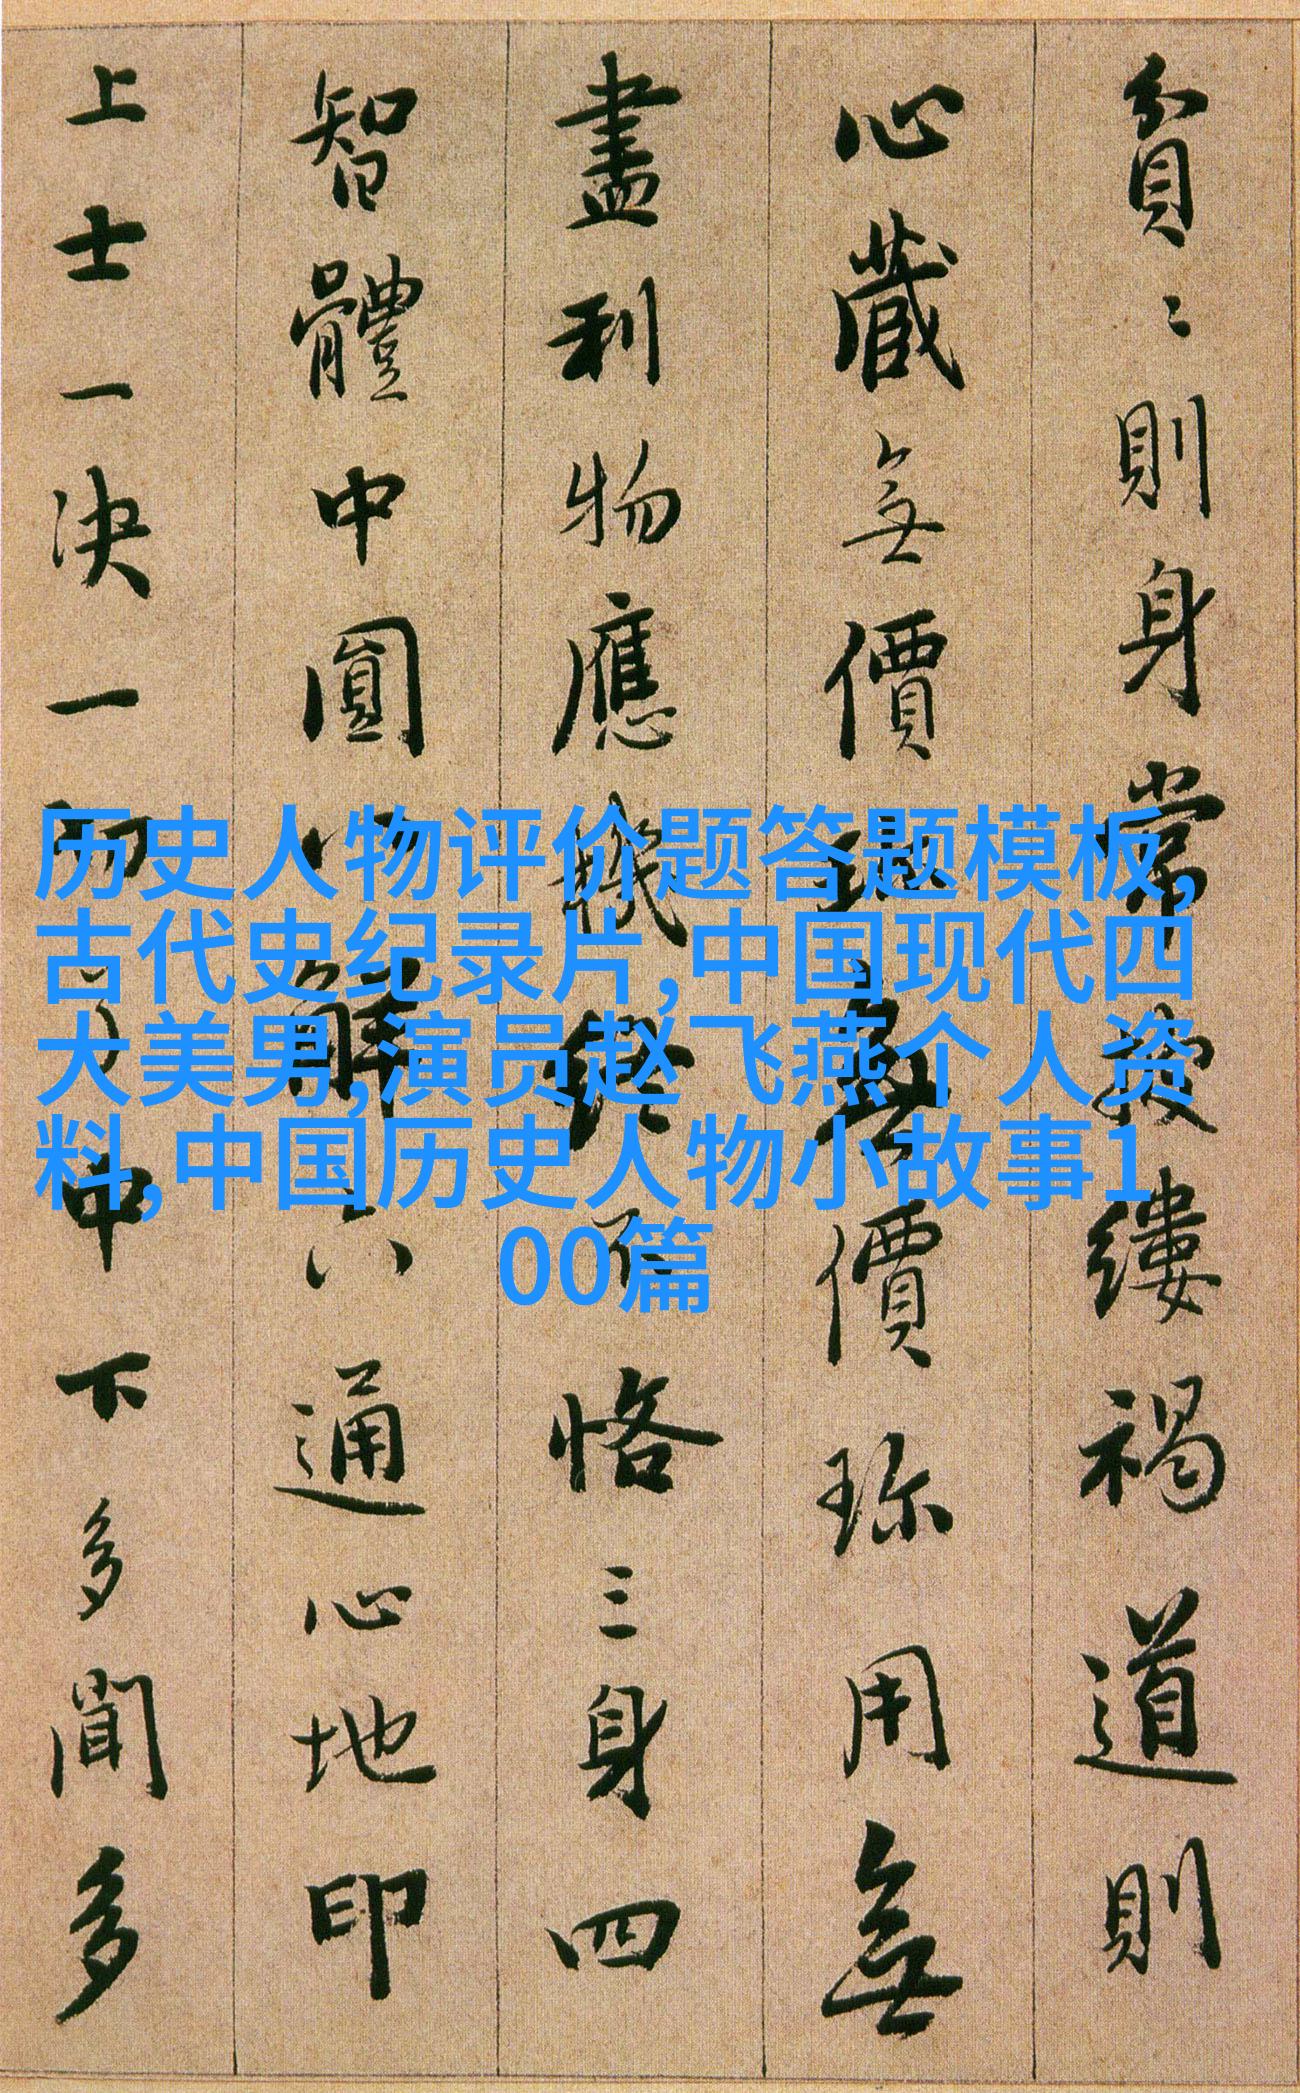 貧〻則身常披縷褐道則
心藏無價珎無價珎用無
盡利物應機終不恪三身四
智體中圓八解六通心地印
上士一決一切了中下多聞多
历史人物评价题答题模板,
古代史纪录片,中国现代四
大美男,演员赵飞燕个人资
料,中国历史人物小故事1
00篇